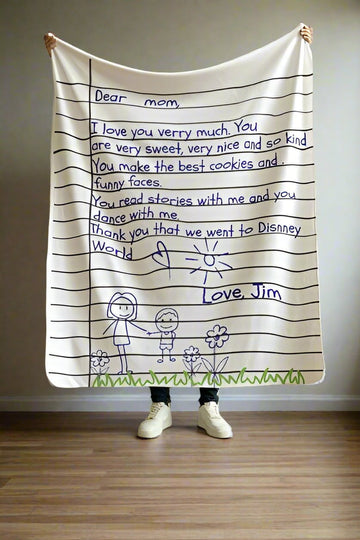 Dear mom,
I love you verry much. You
are very sweet, very nice and so kind
You make the best cookies and .
funny faces.
You read stories with me and you
dance with me
Thank you that we went to Disnney
World
Love, Jim